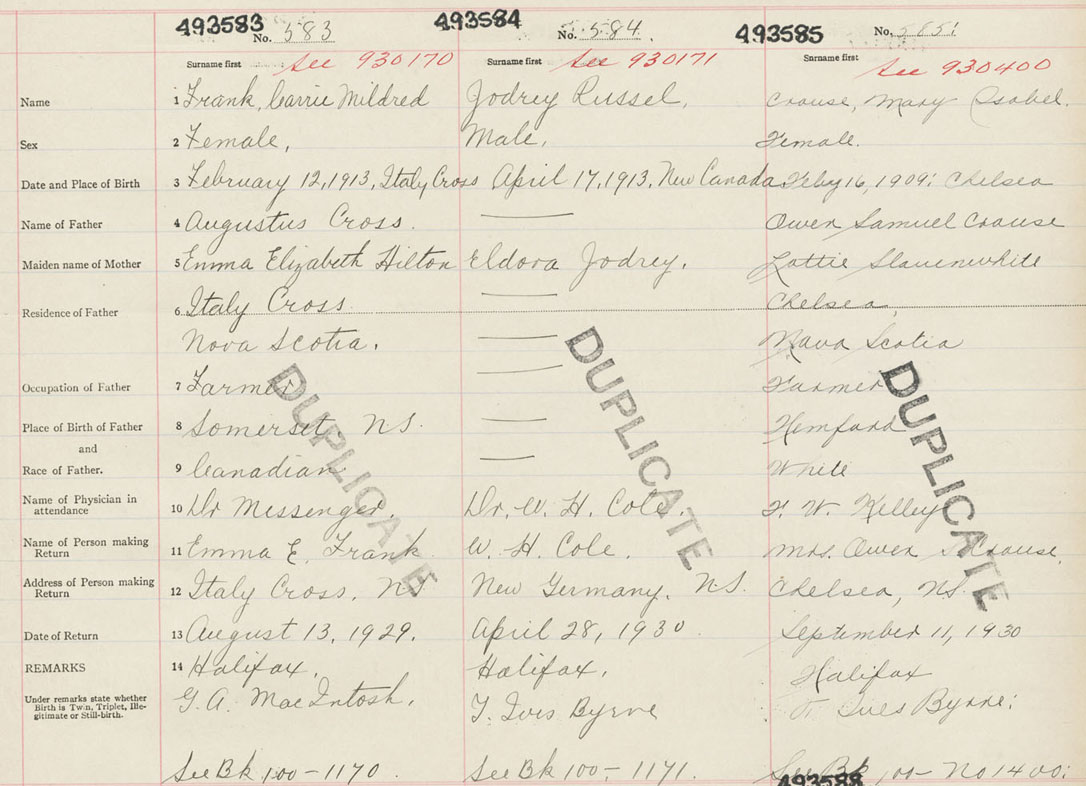 493583 No. 583
493584 No. 584.
493585 No.
Surname first See 930170
Surname first See 930171
Surname first See 930400
Name 1 Frank, Carrie Mildred Jodrey Russel, Crouse, Mary Isabel.
Sex 2 Female, Male, Female.
Date and Place of Birth 3 February 12, 1913, Italy Cross April 17, 1913, New Canada Feby 16, 1909: Chelsea
Name of Father 4 Augustus Cross. Owen Samuel Crouse
Maiden name of Mother 5 Emma Elizabeth Hilton Eldora Jodrey. Lottie Slauenwhite
Residence of Father 6 Italy Cross Chelsea,
Nova Scotia. Nova Scotia
Occupation of Father 7 Farmer Farmer
Place of Birth of Father 8 Somerset NS. Hemford
and
Race of Father. 9 Canadian White
Name of Physician in attendance 10 Dr Messenger. Dr. W. H. Cole. F. W. Kelley
Name of Person making Return 11 Emma E. Frank W. H. Cole. Mrs. Owen S. Crouse.
Address of Person making Return 12 Italy Cross, NS New Germany. N.S. Chelsea, NS.
Date of Return 13 August 13, 1929. April 28, 1930. September 11, 1930
REMARKS 14 Halifax, Halifax. Halifax
Under remarks state whether Birth is Twin, Triplet, Ille-
gitimate or Still-birth.
G. A. MacIntosh, T. Ives Byrne Ives Byrne:
See Bk 100-1170. See Bk 100-1171. See Bk 100- No 1400:
DUPLICATE
DUPLICATE
DUPLICATE
493588